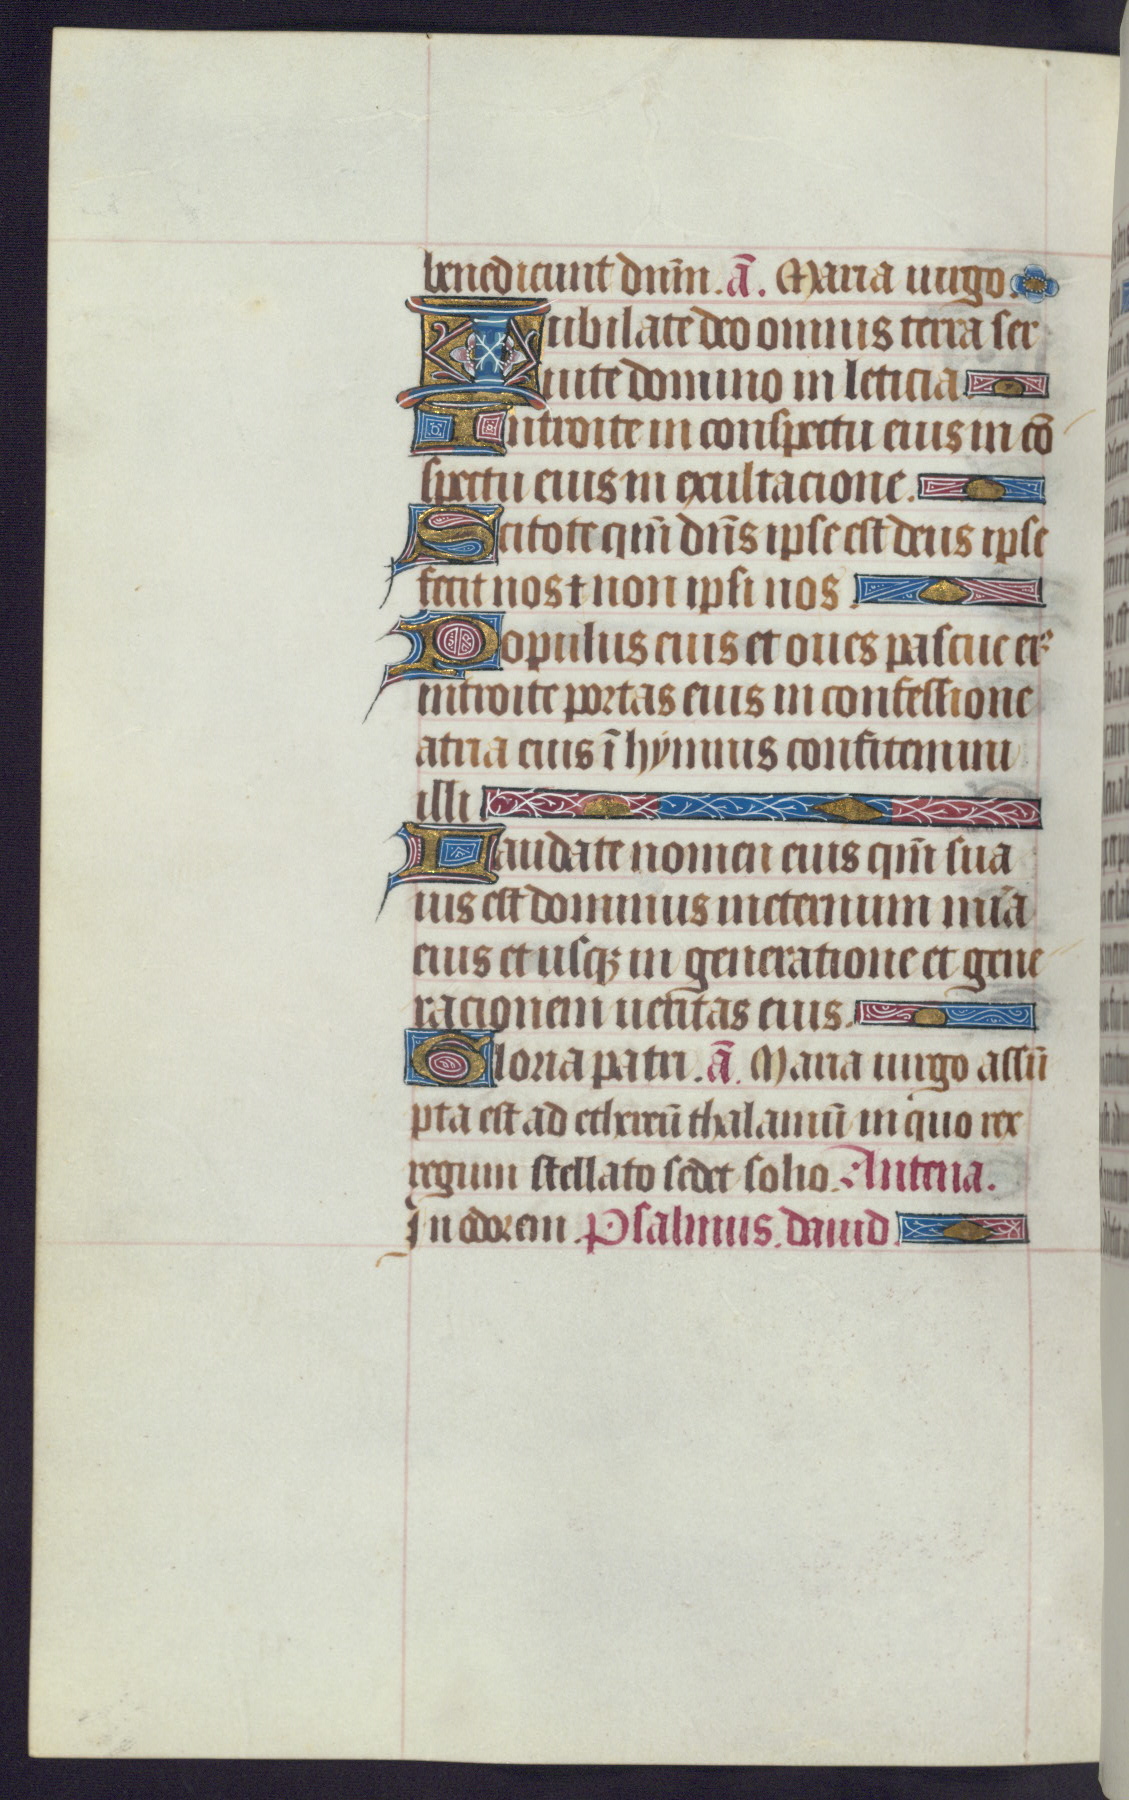 benedicunt dnm̄. a͞. Maria uirgo.
Iubilate deo omnis terra ser
uite domino in leticia
Introite in conspectu eius in cō
spectu eius in exultacione.
Scitote qm̄ dn̄s ipse est deus ipse
fecit nos ⁊ non ipsi nos.
Populus eius et oues pascue eiꝰ
introite portas eius in confessione
atria eius ī hymnis confitemini
illi
Laudate nomen eius qm̄ sua
uis est dominus ineternum mīa
eius et usqꝫ in generatione et gene
racionem ueritas eius.
Gloria patri. a͞. Maria uirgo assū
pta est ad ethereū thalamū in quo rex
regum stellato sedet solio. Antena.
In odorem. Psalmus. dauid.